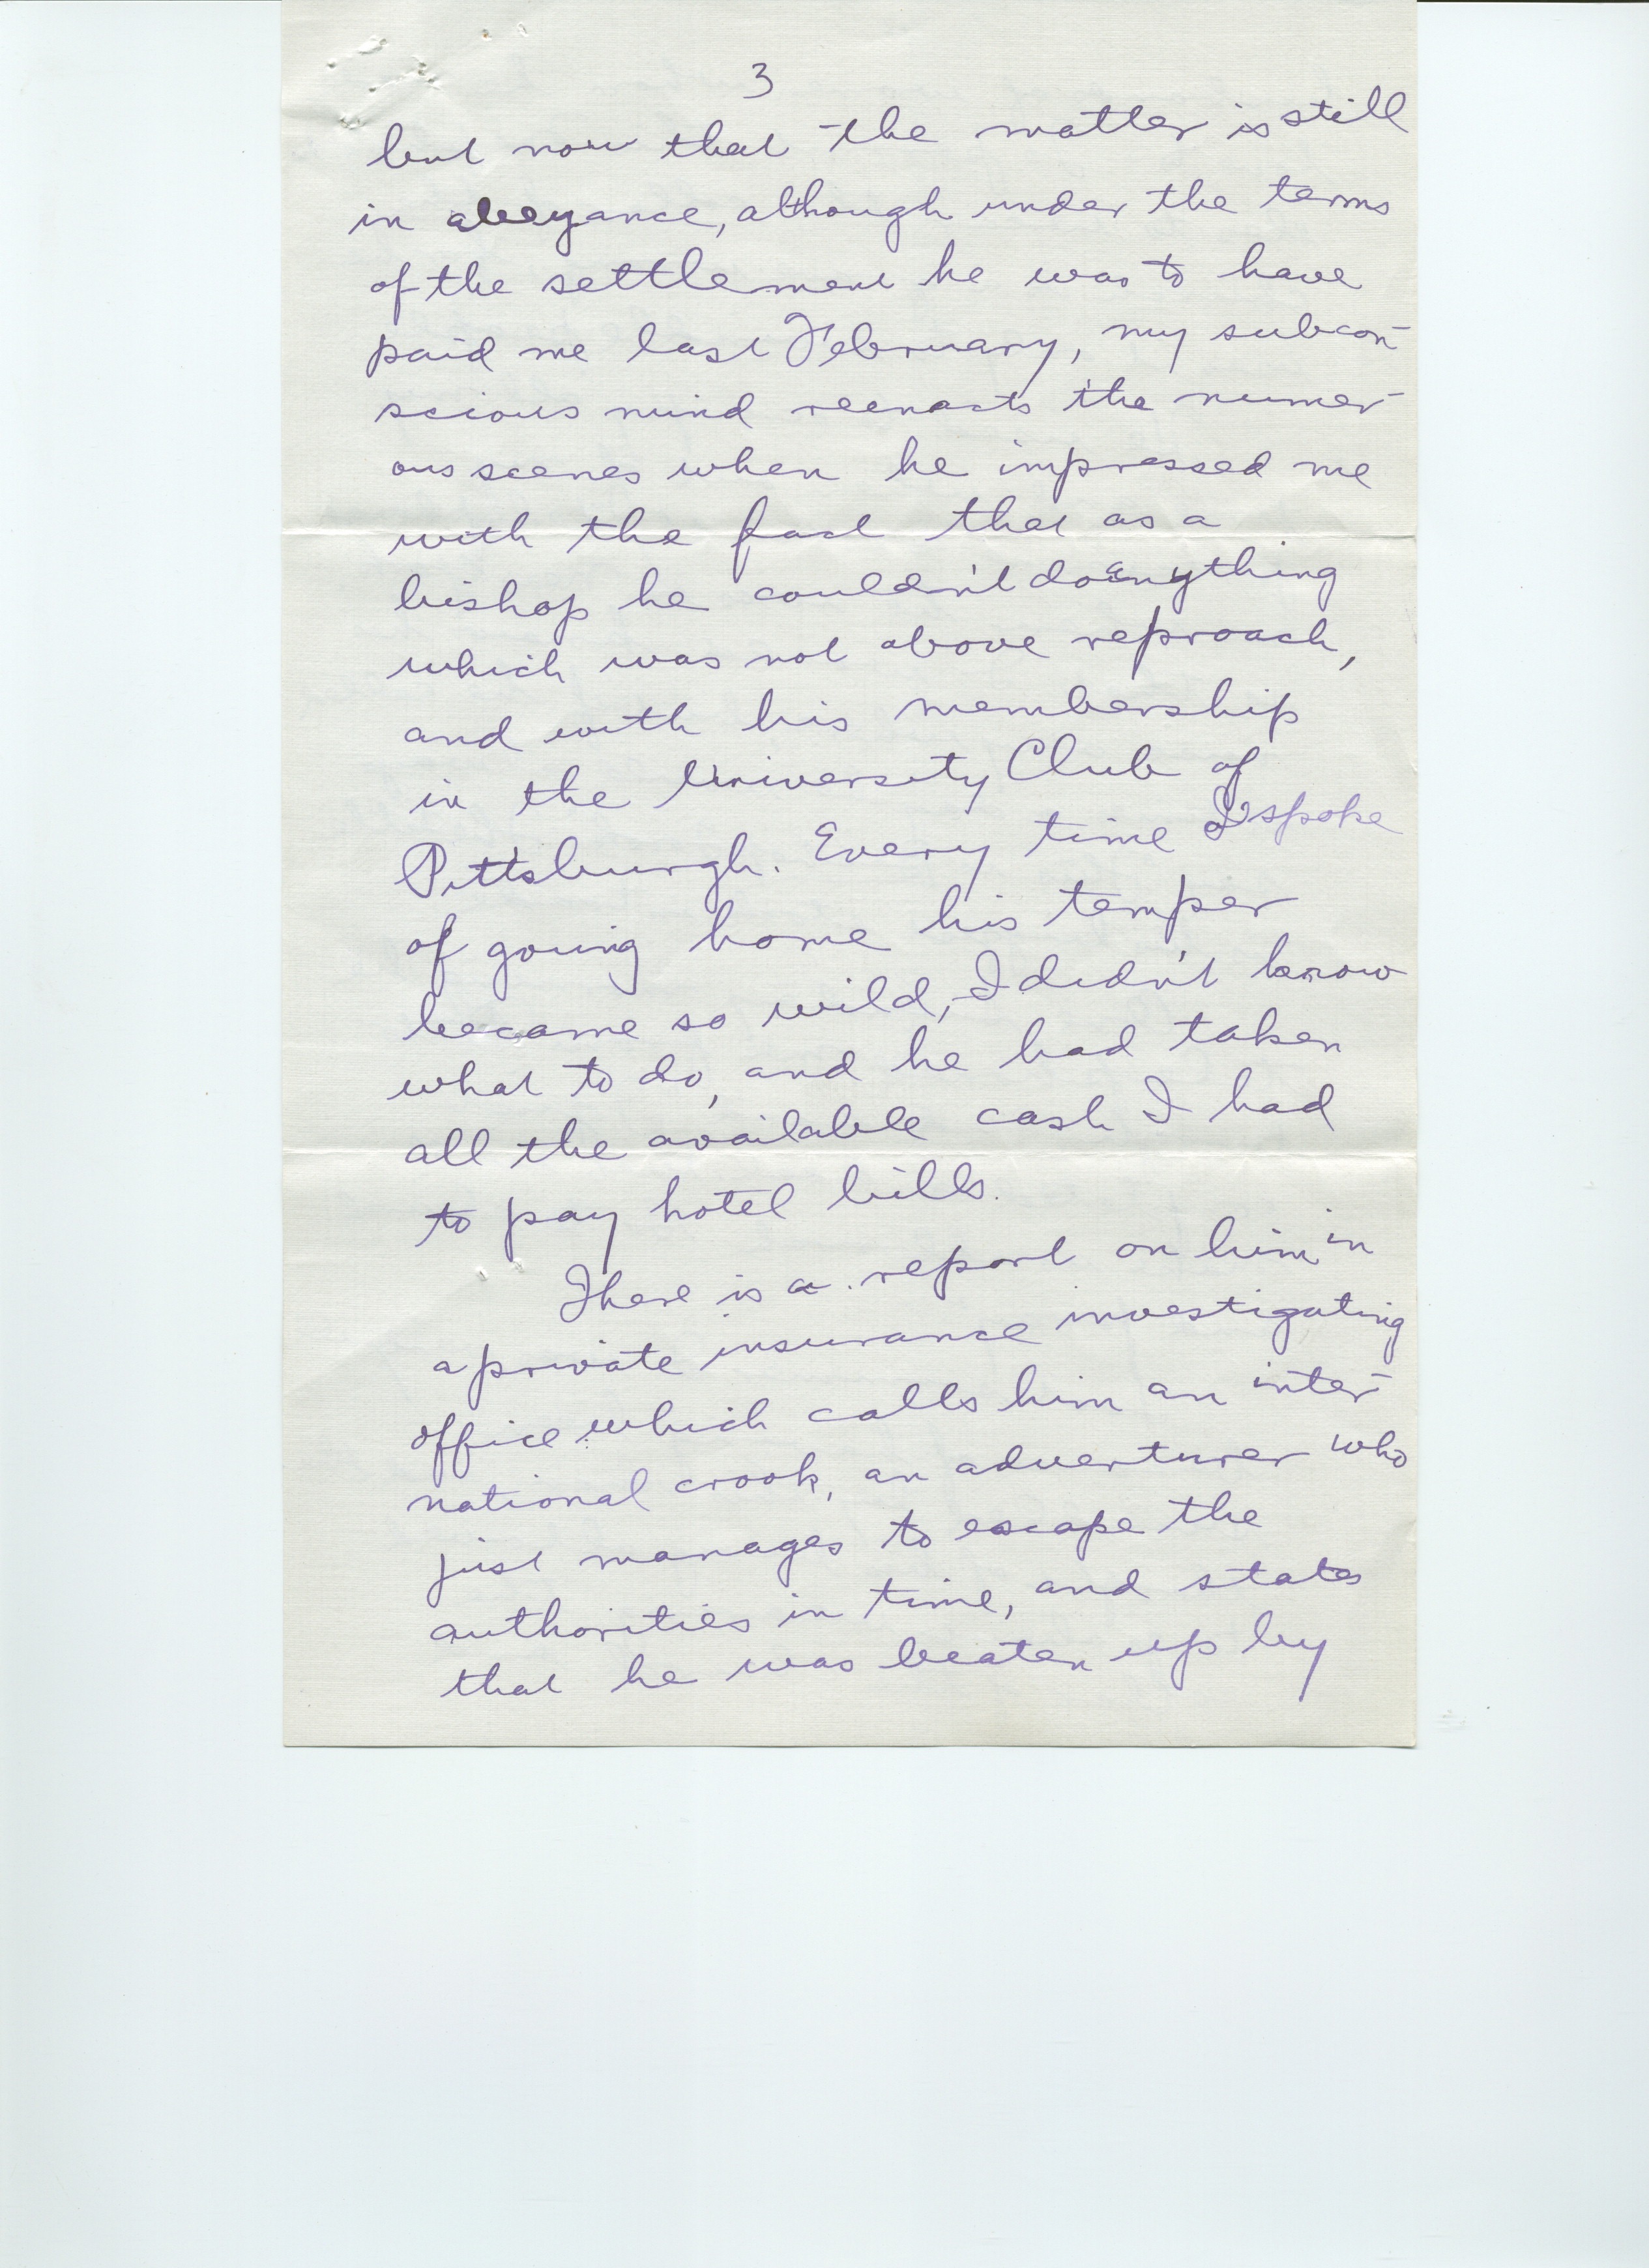 3
but now that the matter is still
in abeyance, although under the terms
of the settlement he was to have
paid me last February, my subcon-
scious mind reenacts the numer-
ous scenes when he impressed me
with the fact that as a
bishop he couldn't do anything
which was not above reproach,
and with his membership
in the University Club of
Pittsburgh. Every time I spoke
of going home his temper
became so wild, I didn't know
what to do, and he had taken
all the available cash I had
to pay hotel bills.
There is a report on him in
a private insurance investigating
office which calls him an inter-
national crook, an adventurer who
just manages to escape the
authorities in time, and states
that he was beaten up by